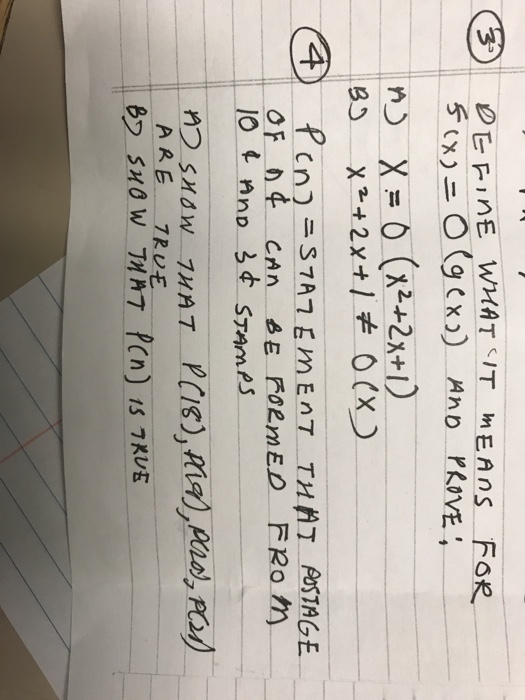 ③ DEFINE WHAT IT MEANS FOR
f(x) = O(g(x)) AND PROVE:
A) X = O(x²+2x+1)
B) x²+2x+1 ≠ O(x)
④ P(n) = STATEMENT THAT POSTAGE
OF n¢ CAN BE FORMED FROM
10¢ AND 3¢ STAMPS
A) SHOW THAT P(18), P(19), P(20), P(21)
ARE TRUE
B) SHOW THAT P(n) IS TRUE